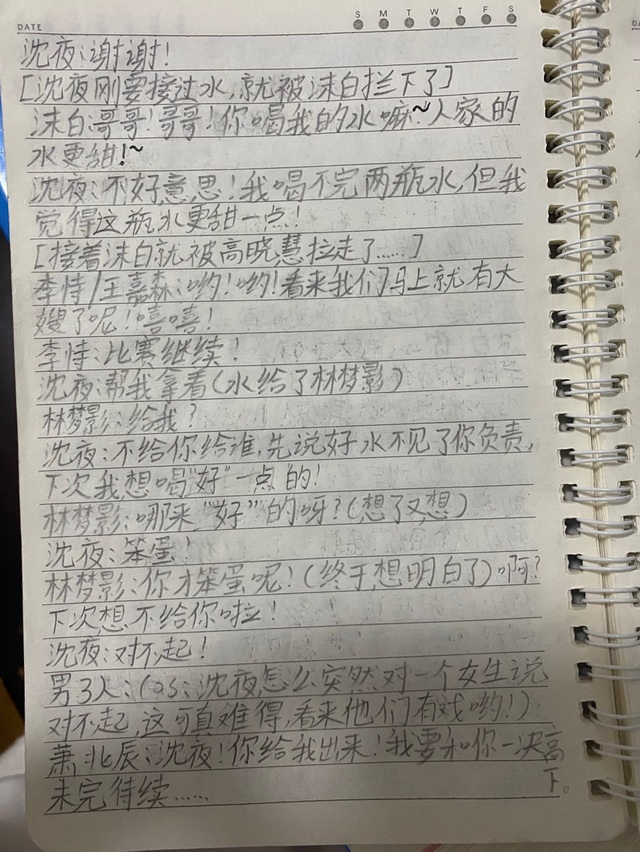 DATE
S M T W T F S
沈夜:谢谢!
[沈夜刚要接过水,就被沫白拦下了]
沫白:哥哥!哥哥!你喝我的水嘛~人家的
水更甜!~
沈夜:不好意思!我喝不完两瓶水,但我
觉得这瓶水更甜一点!
[接着沫白就被高晓慧拉走了……]
李恃/王嘉森:哟!哟!看来我们马上就有大
嫂了呢!嘻嘻!
李恃:比赛继续!
沈夜:帮我拿着(水给了林梦影)
林梦影:给我?
沈夜:不给你给谁,先说好水不见了你负责,
下次我想喝"好"一点的!
林梦影:哪来"好"的呀?(想了又想)
沈夜:笨蛋!
林梦影:你才笨蛋呢!(终于想明白了)啊?
下次想不给你啦!
沈夜:对不起!
男3人:(os:沈夜怎么突然对一个女生说
对不起,这可真难得,看来他们有戏哟!)
萧北辰:沈夜!你给我出来!我要和你一决高
下。
未完待续……